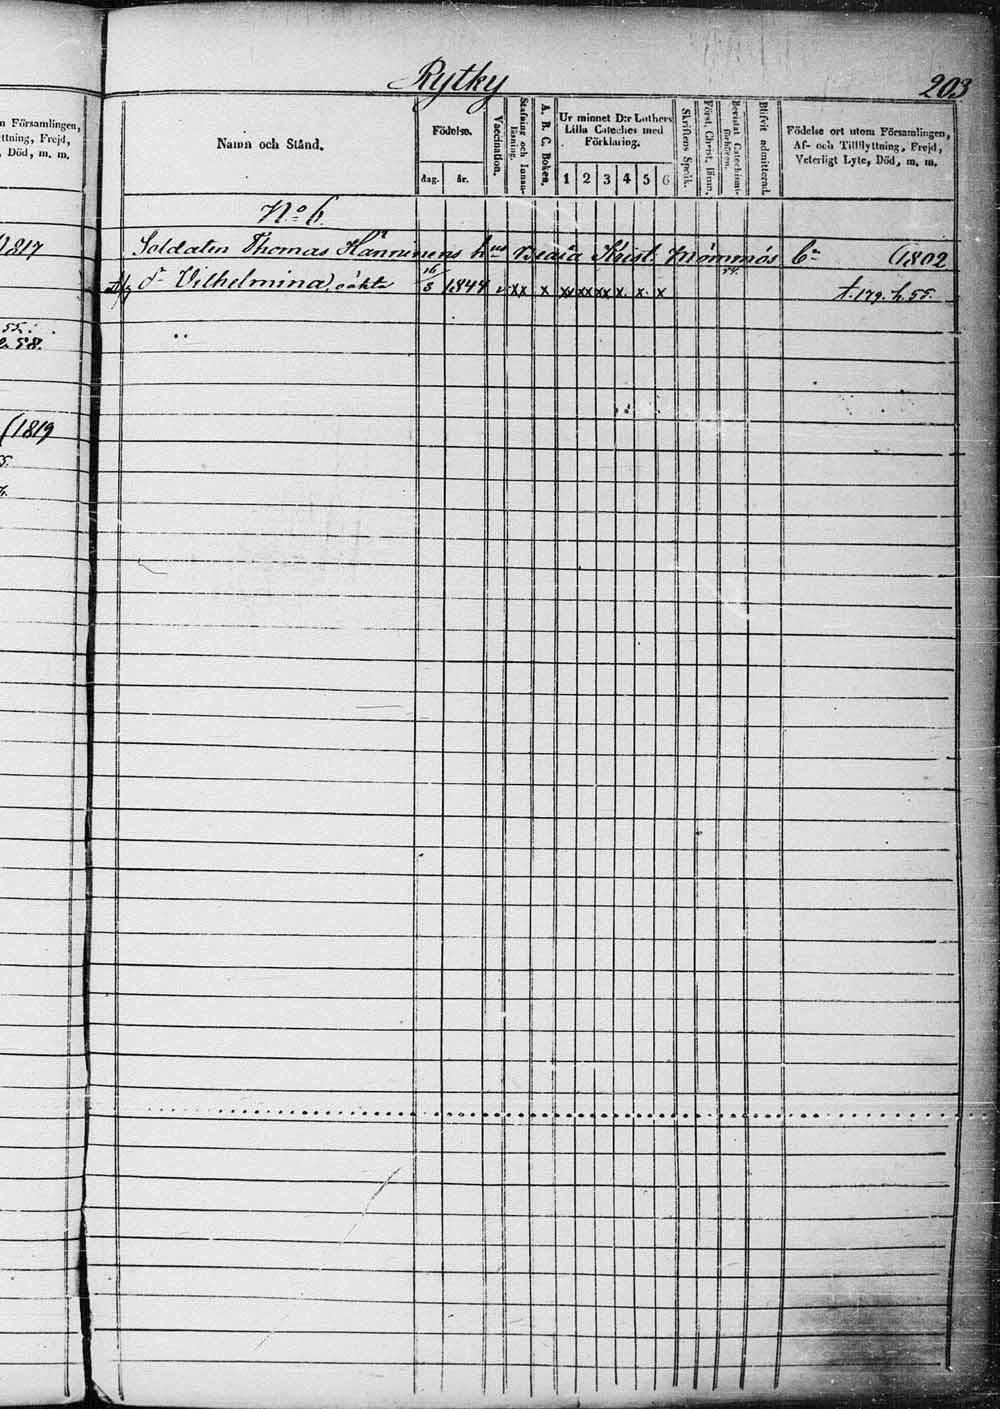 Rytky
203
n Församlingen,
yttning, Frejd,
, Död, m. m.
1817
55.
58.
(1819
Namn och Stånd.
Födelse.
dag.
år.
Vaccination.
Stafning och Innan-
läsning.
A. B. C. Boken.
Ur minnet D:r Luthers
Lilla Cateches med
Förklaring.
1 2 3 4 5 6
Skriftens Språk.
Först. Christ. lärun.
Bevistat Catechismi-
förhören.
Blifvit admitterad.
Födelse ort utom Församlingen,
Af- och Tillflyttning, Frejd,
Veterligt Lyte, Död, m. m.
N:o 6.
Soldaten Thomas Hänninens Krist. (1802
Vilhelmina, oäkta 16/3 1844 v xx x xx xx xx x. x. x 54. t. 179. h. 55.